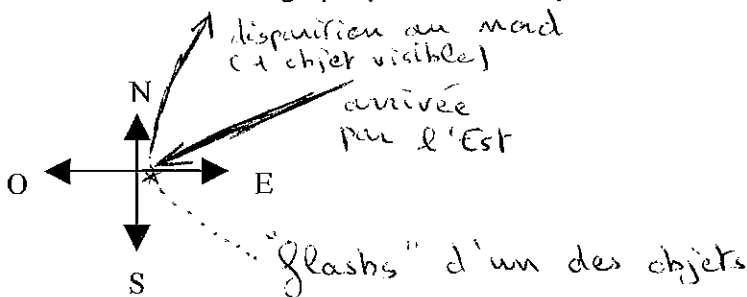 disparition au nord
(+ objet visible)
arrivée
par l'Est
N
O
E
S
"flashs" d'un des objets